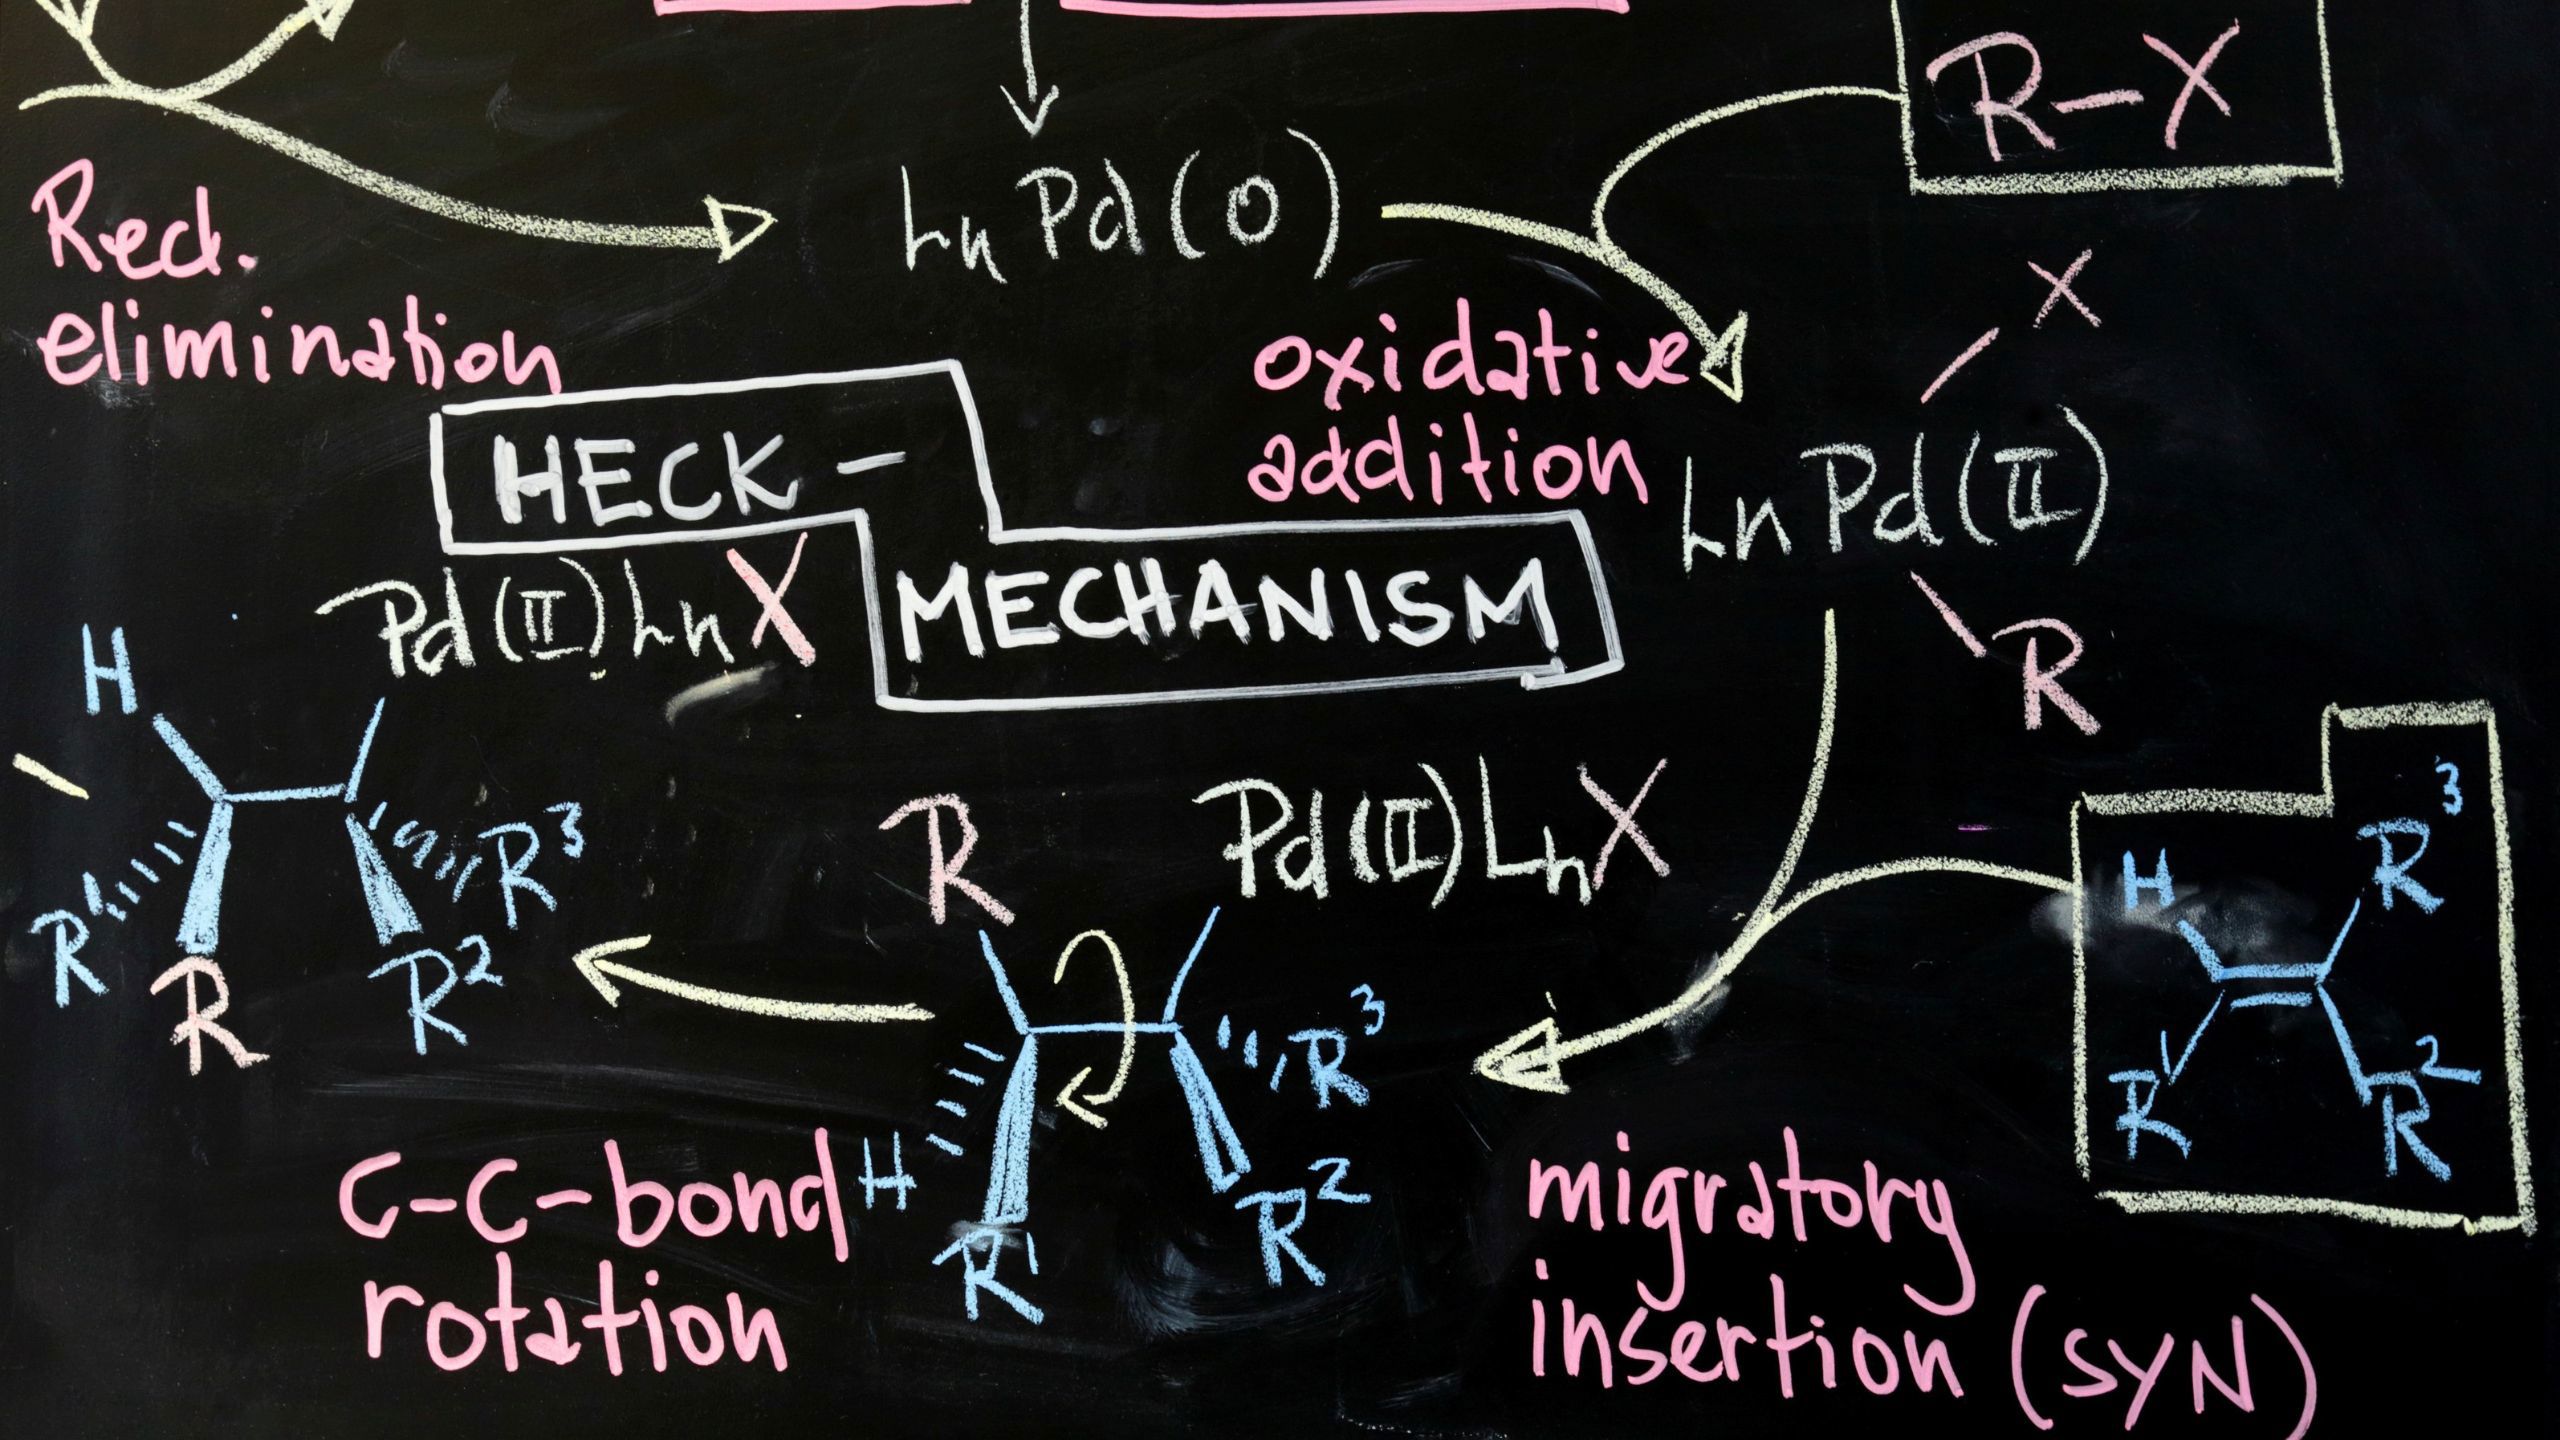 R-X
LnPd(0)
Red.
elimination
oxidative
addition
X
LnPd(II)
R
HECK-
MECHANISM
Pd(II)LnX
H
R¹
R
R²
R³
R
Pd(II)LnX
H
R¹
R²
R³
H
R³
R¹
R²
C-C-bond
rotation
migratory
insertion (SYN)